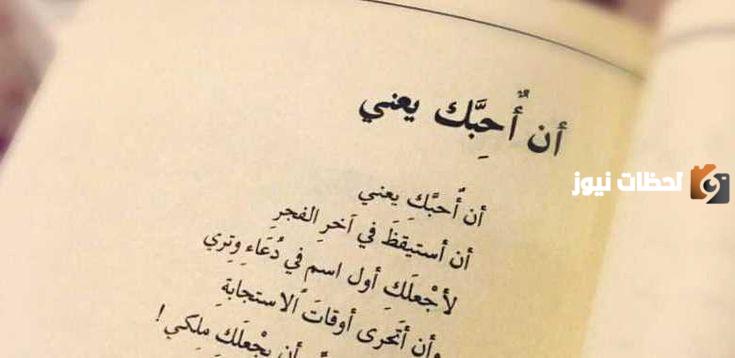 أن أُحِبَّك يعني
أن أُحبَّكِ يعني
أن أستيقظَ في آخرِ الفجرِ
لأجْعلَكِ أول اسم في دُعَاءِ وِتري
وأن أتحرى أوقاتَ الاستجابةِ
أن يجْعلَكِ ملكي !
لحظات نيوز